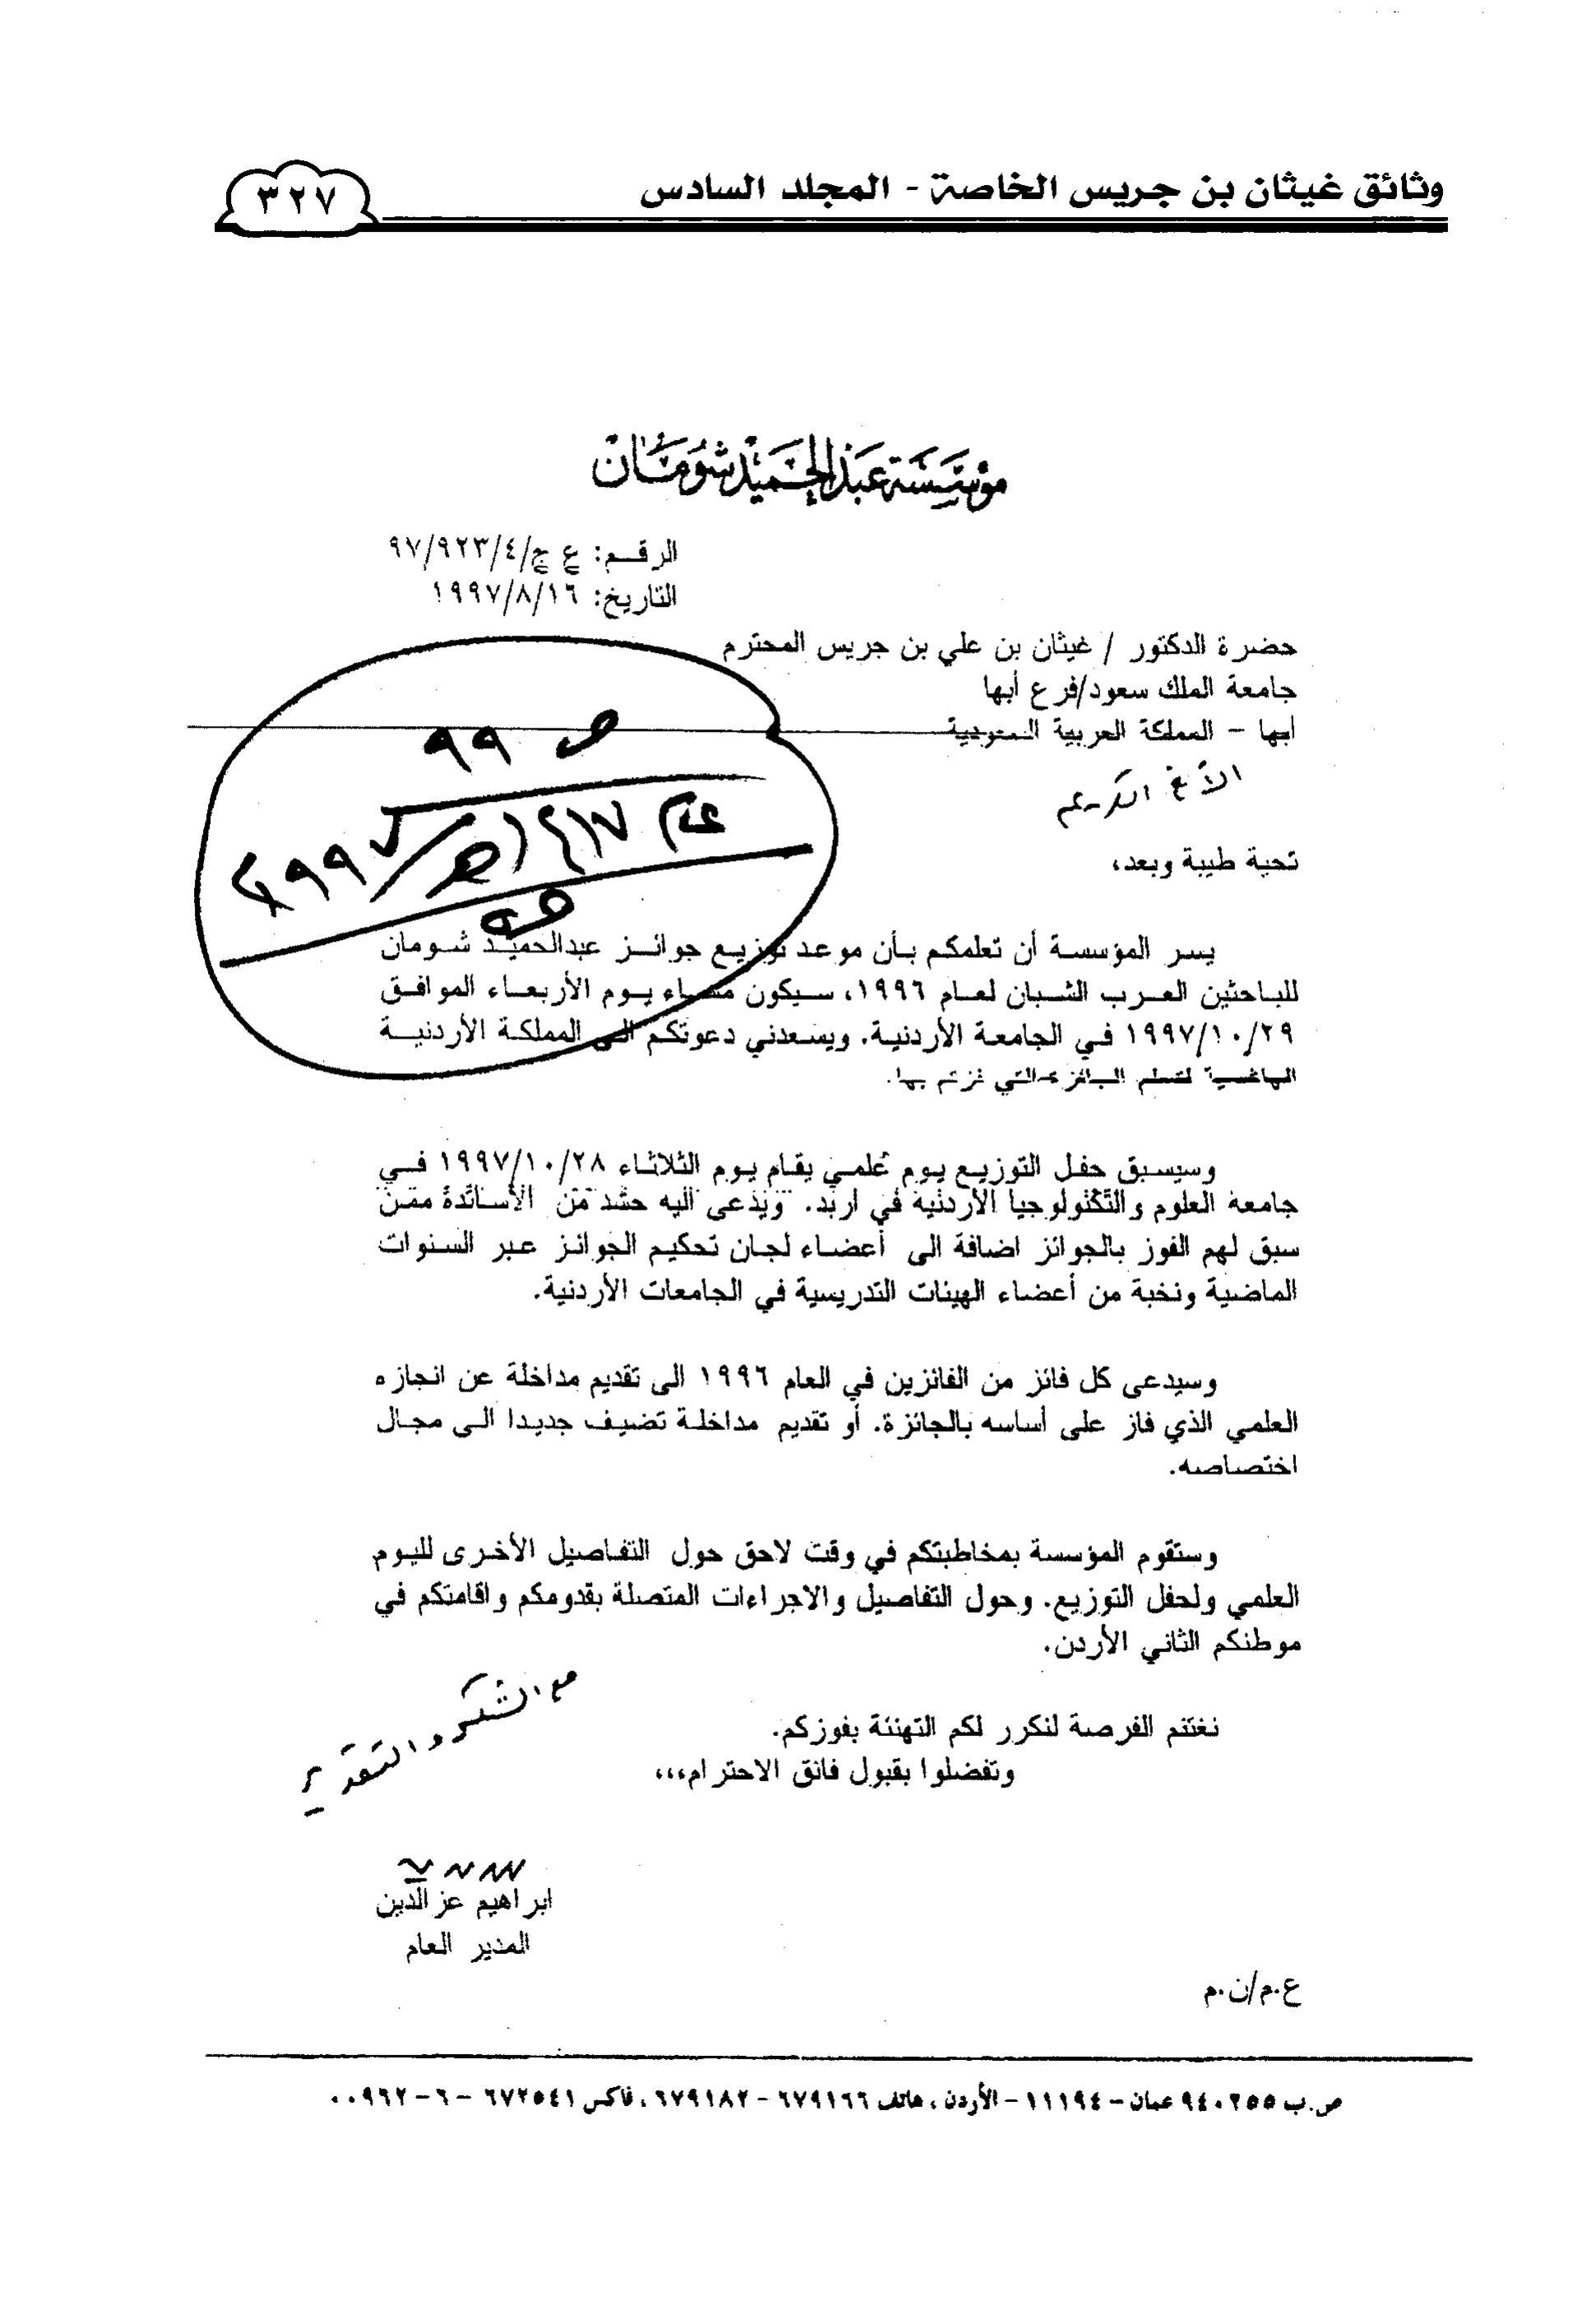 وثائق غيثان بن جريس الخاصة - المجلد السادس
٣٢٧
مؤسسة عبد الحميد شومان
الرقم: ع ج/٩٧/٩٢٣/٤
التاريخ: ١٩٩٧/٨/١٦
حضرة الدكتور / غيثان بن علي بن جريس المحترم
جامعة الملك سعود/فرع أبها
أبها - المملكة العربية السعودية
الأخ الكريم
ص ٩٩
عام ١٤١٧هـ / ١٩٩٧م
تحية طيبة وبعد،
يسر المؤسسة أن تعلمكم بأن موعد توزيع جوائز عبدالحميد شومان
للباحثين العرب الشبان لعام ١٩٩٦، سيكون مساء يوم الأربعاء الموافق
١٩٩٧/١٠/٢٩ في الجامعة الأردنية. ويسعدني دعوتكم الى المملكة الأردنية
الهاشمية لتسلم الجائزة التي فزتم بها.
وسيسبق حفل التوزيع يوم علمي يقام يوم الثلاثاء ١٩٩٧/١٠/٢٨ في
جامعة العلوم والتكنولوجيا الأردنية في اربد. ويدعى اليه حشد من الأساتذة ممن
سبق لهم الفوز بالجوائز اضافة الى أعضاء لجان تحكيم الجوائز عبر السنوات
الماضية ونخبة من أعضاء الهيئات التدريسية في الجامعات الأردنية.
وسيدعى كل فائز من الفائزين في العام ١٩٩٦ الى تقديم مداخلة عن انجازه
العلمي الذي فاز على أساسه بالجائزة. أو تقديم مداخلة تضيف جديدا الى مجال
اختصاصه.
وستقوم المؤسسة بمخاطبتكم في وقت لاحق حول التفاصيل الأخرى لليوم
العلمي ولحفل التوزيع. وحول التفاصيل والاجراءات المتصلة بقدومكم واقامتكم في
موطنكم الثاني الأردن.
نغتنم الفرصة لنكرر لكم التهنئة بفوزكم.
وتفضلوا بقبول فائق الاحترام،،،
مع الشكر والتقدير
ابراهيم عزالدين
المدير العام
ع.م/ن.م
ص.ب ٩٤٠٢٥٥ عمان - ١١١٩٤ - الأردن، هاتف ٦٧٩١٦٦ - ٦٧٩١٨٢، فاكس ٦٧٢٥٤١ - ٦ - ٠٠٩٦٢